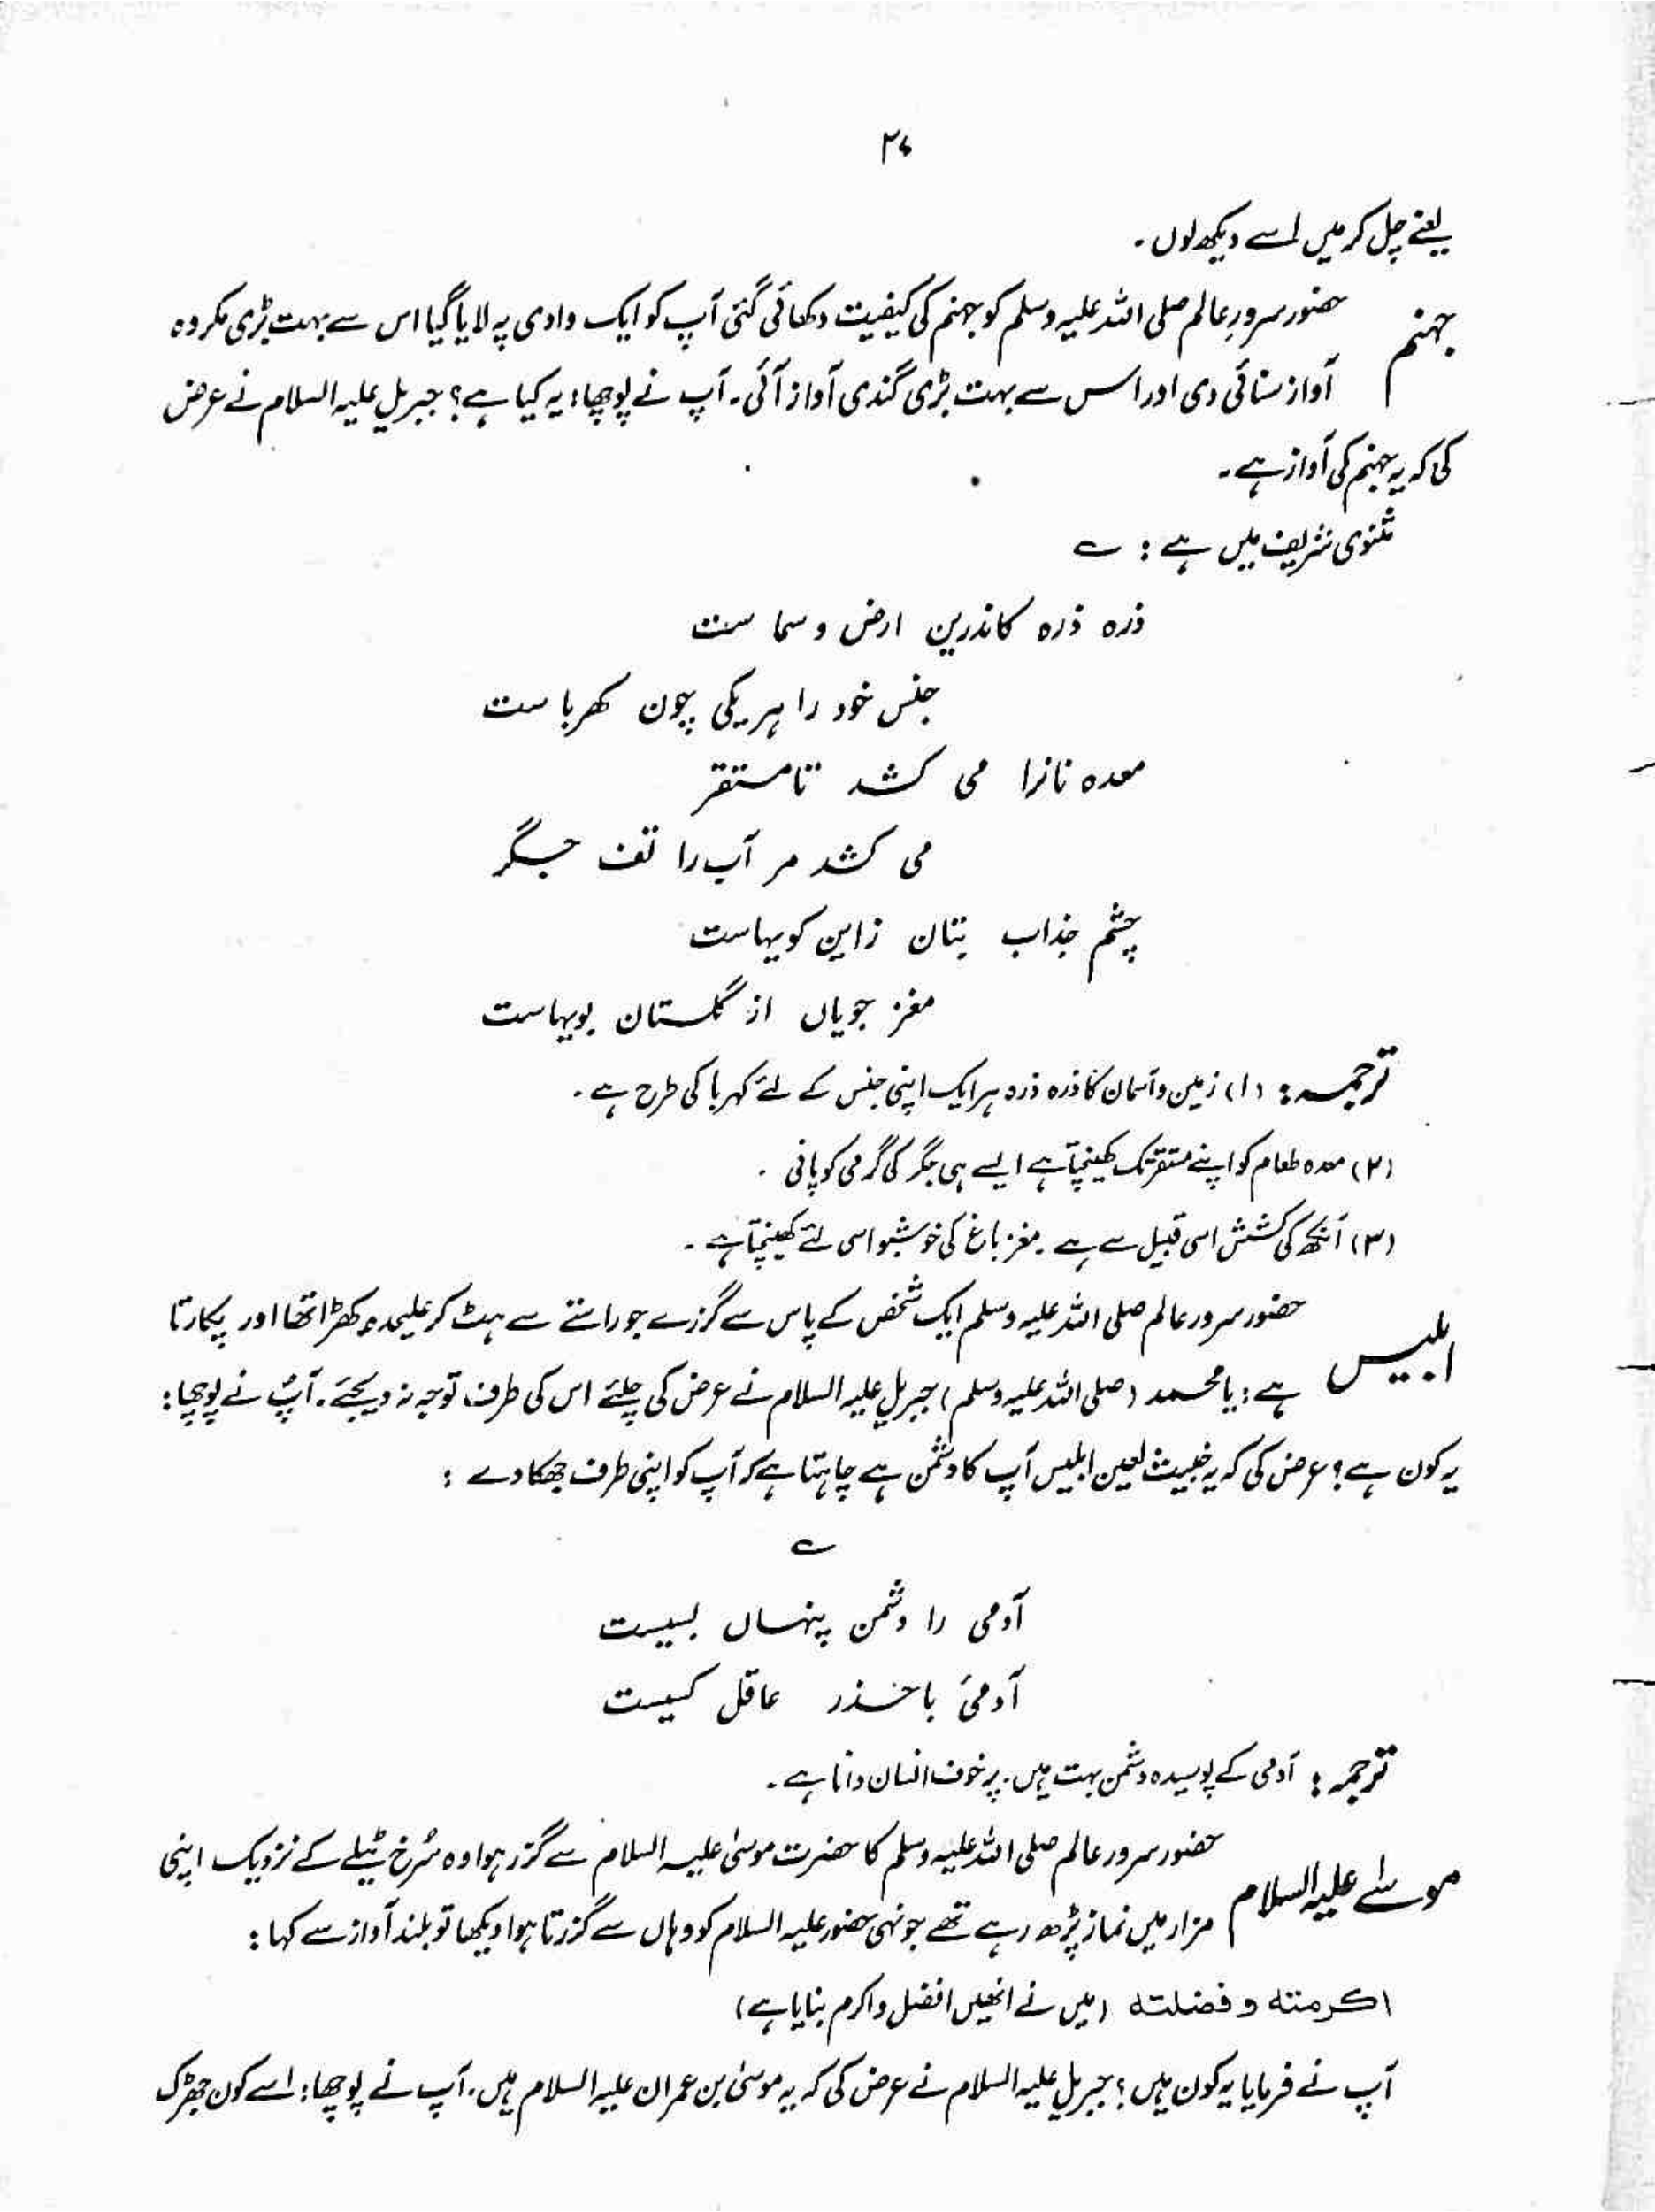 ۲۷
یعنے چل کر میں اسے دیکھ لوں۔
جہنم حضور سرورِ عالم صلی اللہ علیہ وسلم کو جہنم کی کیفیت دکھائی گئی آپ کو ایک وادی پہ لایا گیا اس سے بہت بڑی مکروہ
آواز سنائی دی اور اس سے بہت بڑی گندی آواز آئی۔ آپ نے پوچھا: یہ کیا ہے؟ جبریل علیہ السلام نے عرض
کی کہ یہ جہنم کی آواز ہے۔
مثنوی شریف میں ہے: ؎
ذرہ ذرہ کاندرین ارض و سما ست
جنس خود را ہر یکی چون کھربا ست
معدہ نانرا می کشد تا مستقر
می کشد مر آب را تف جگر
چشم جذاب بتان زاین کویہاست
مغز جویاں از گلستان بویہاست
ترجمہ: (۱) زمین و آسمان کا ذرہ ذرہ ہر ایک اپنی جنس کے لئے کہربا کی طرح ہے۔
(۲) معدہ طعام کو اپنے مستقر تک کھینچتا ہے ایسے ہی جگر کی گرمی کو پانی ۔
(۳) آنکھ کی کشش اسی قبیل سے ہے۔ مغز باغ کی خوشبو اسی لئے کھینچتا ہے۔
ابلیس حضور سرور عالم صلی اللہ علیہ وسلم ایک شخص کے پاس سے گزرے جو راستے سے ہٹ کر علیحدہ کھڑا تھا اور پکارتا
ہے: یا محمد (صلی اللہ علیہ وسلم) جبریل علیہ السلام نے عرض کی چلئے اس کی طرف توجہ نہ دیجئے۔ آپؐ نے پوچھا:
یہ کون ہے؟ عرض کی کہ یہ خبیث لعین ابلیس آپ کا دشمن ہے چاہتا ہے کہ آپ کو اپنی طرف جھکا دے:
؎
آدمی را دشمن پنہاں بسیست
آدمیٔ باحذر عاقل کسیست
ترجمہ: آدمی کے پوسیدہ دشمن بہت ہیں۔ پر خوف انسان دانا ہے۔
موسٰے علیہ السلام حضور سرور عالم صلی اللہ علیہ وسلم کا حضرت موسٰی علیہ السلام سے گزر ہوا وہ سُرخ ٹیلے کے نزدیک اپنی
مزار میں نماز پڑھ رہے تھے جونہی حضور علیہ السلام کو وہاں سے گزرتا ہوا دیکھا تو بلند آواز سے کہا:
اکرمتہ و فضلتہ (میں نے انھیں افضل و اکرم بنایا ہے)
آپ نے فرمایا یہ کون ہیں؟ جبریل علیہ السلام نے عرض کی کہ یہ موسٰی بن عمران علیہ السلام ہیں۔ آپ نے پوچھا: اسے کون جھڑک